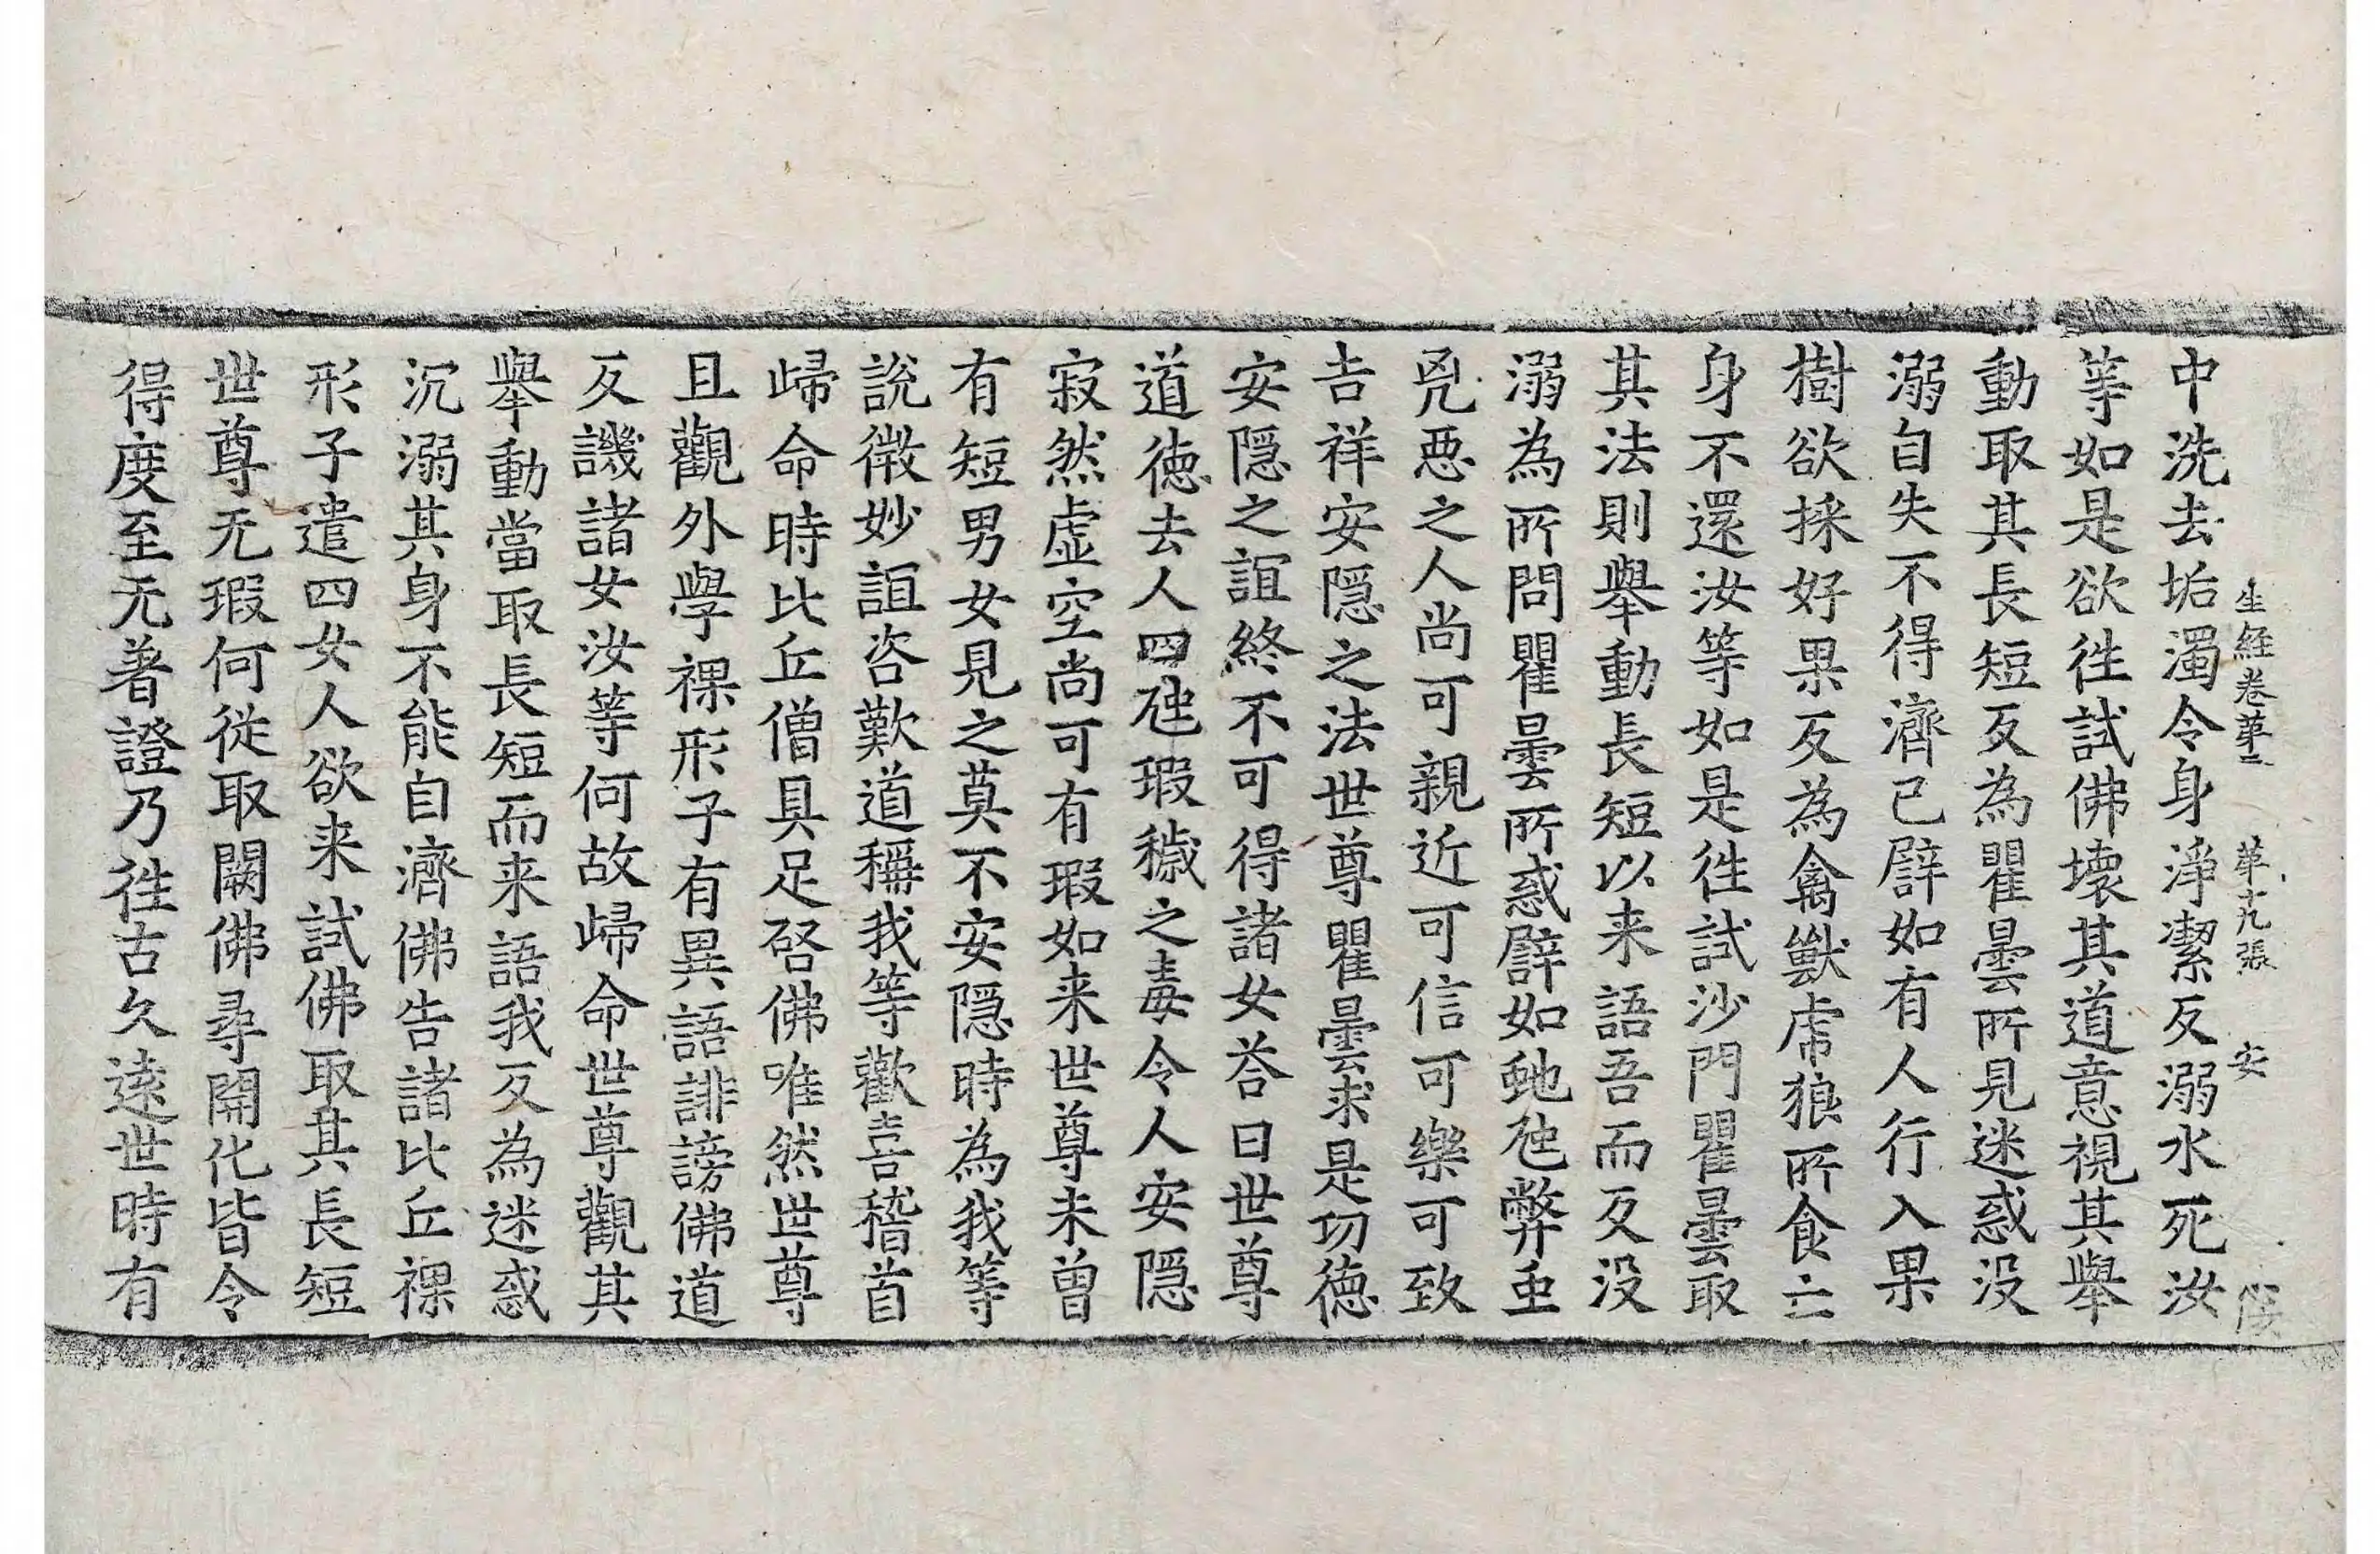 生經卷第二 第十九張 安
中洗去垢濁令身淨潔反溺水死汝
等如是欲往試佛壞其道意視其舉
動取其長短反為瞿曇所見迷惑没
溺自失不得濟已譬如有人行入果
樹欲採好果反為禽獸虎狼所食亡
身不還汝等如是往試沙門瞿曇取
其法則舉動長短以来語吾而反没
溺為所問瞿曇所惑譬如虵虺弊虫
兇悪之人尚可親近可信可樂可致
吉祥安隱之法世尊瞿曇求是功徳
安隱之誼終不可得諸女荅曰世尊
道徳去人四虺瑕穢之毒令人安隱
寂然虚空尚可有瑕如来世尊未曽
有短男女見之莫不安隱時為我等
說微妙誼咨歎道稱我等歡喜稽首
歸命時比丘僧具足啓佛唯然世尊
且觀外學裸形子有異語誹謗佛道
反譏諸女汝等何故歸命世尊觀其
舉動當取長短而来語我反為迷惑
沉溺其身不能自濟佛告諸比丘裸
形子遣四女人欲来試佛取其長短
世尊无瑕何從取闕佛尋開化皆令
得度至无著證乃往古久遠世時有